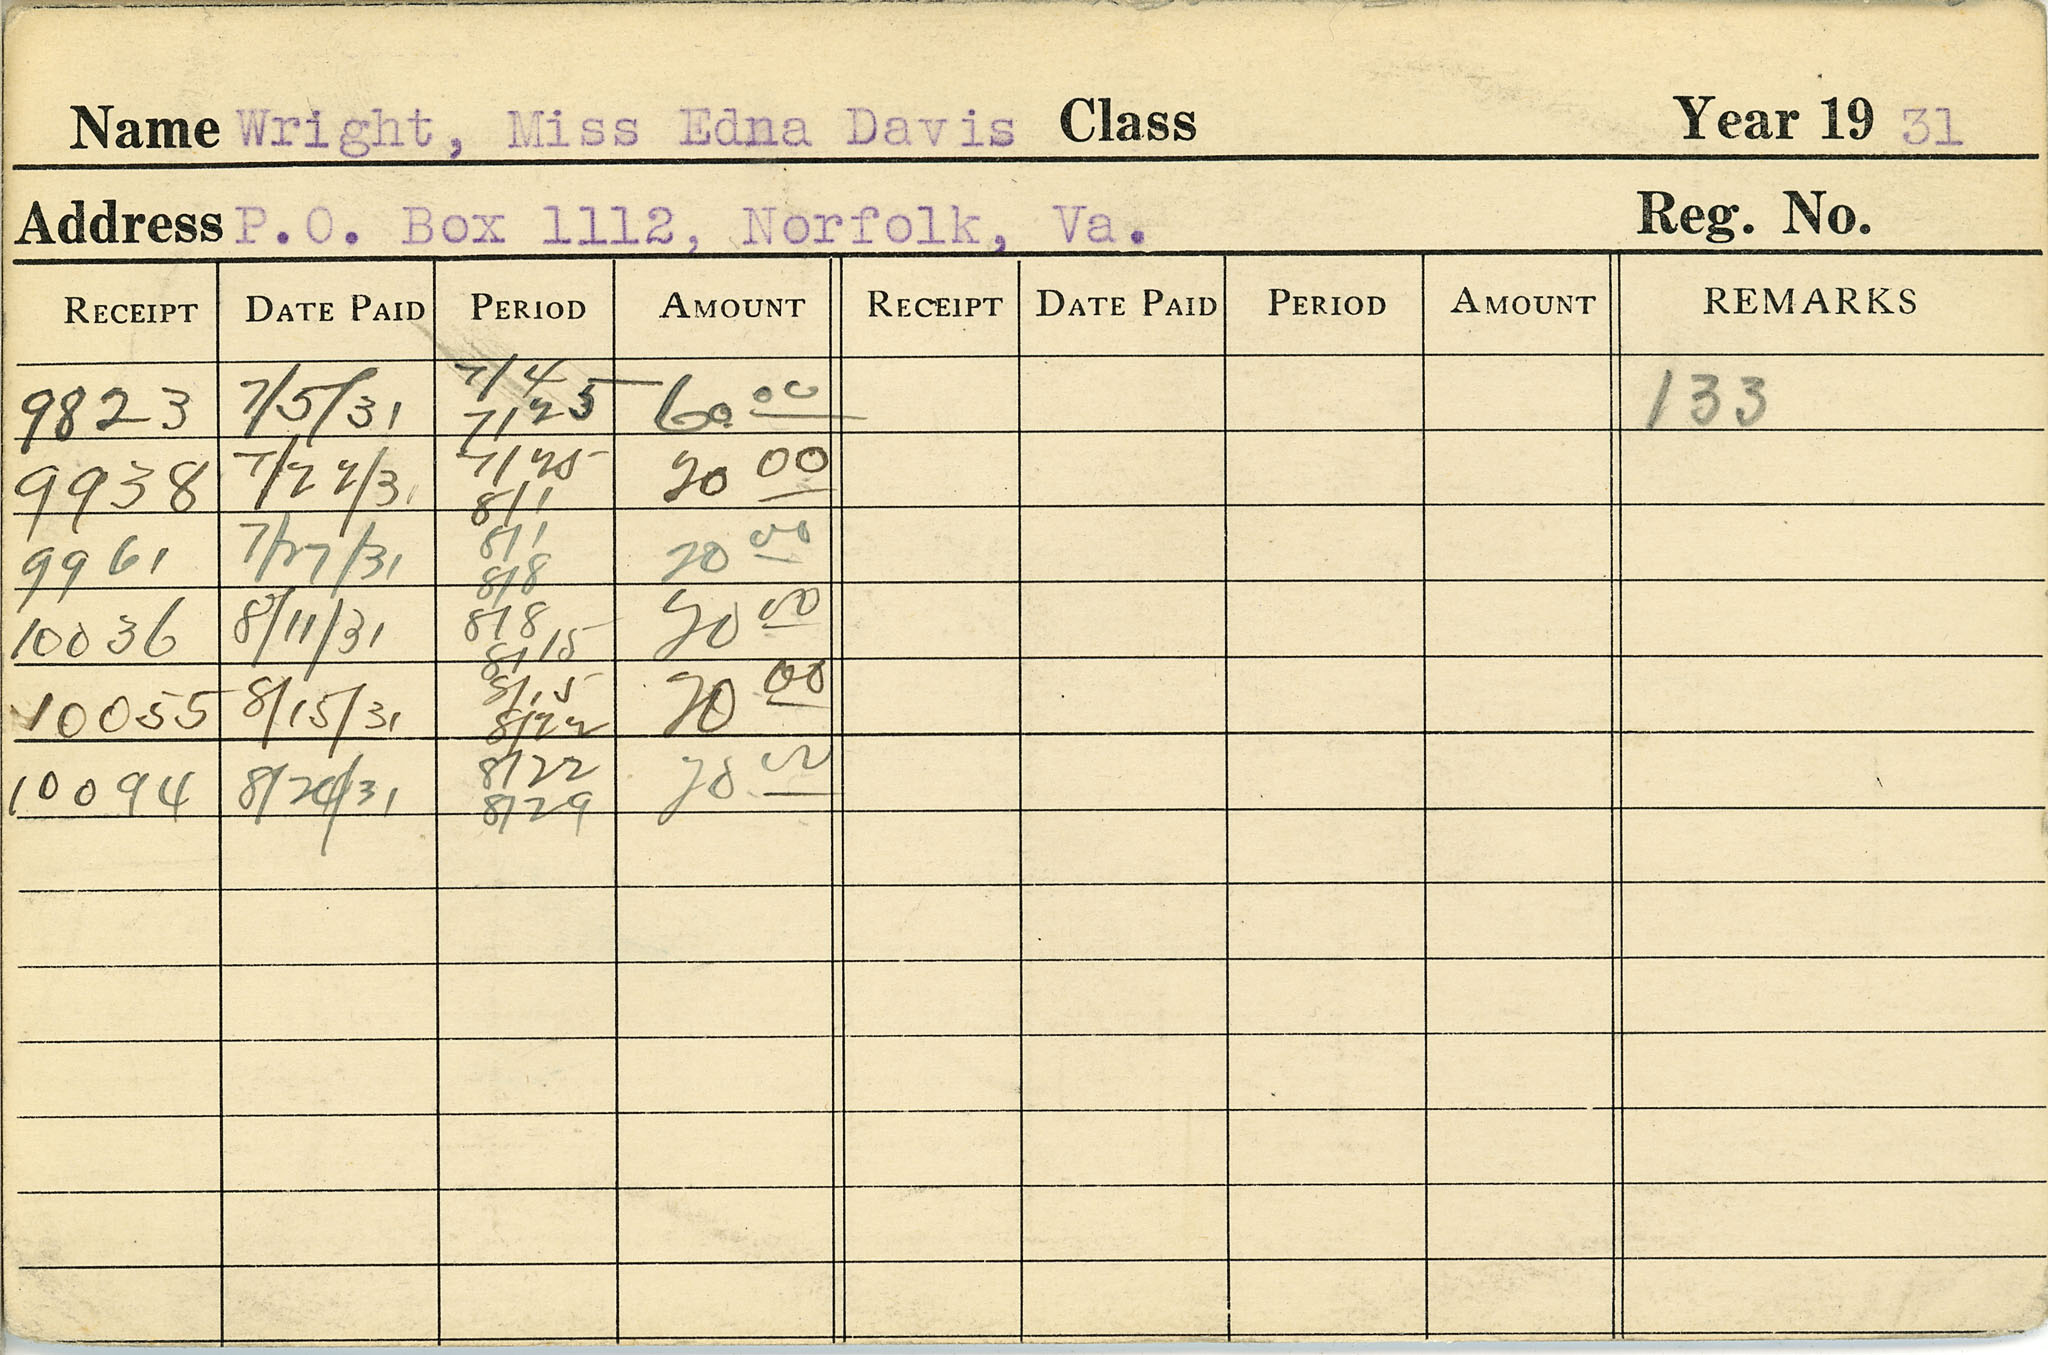 Name Wright, Miss Edna Davis Class Year 19 31
Address P.O. Box 1112, Norfolk, Va. Reg. No.
RECEIPT DATE PAID PERIOD AMOUNT RECEIPT DATE PAID PERIOD AMOUNT REMARKS
9823 7/5/31 7/4 7/25 60.00 133
9938 7/22/31 7/25 8/1 20 00
9961 7/27/31 8/1 8/8 20 00
10036 8/11/31 8/8 8/15 20 00
10055 8/15/31 8/15 8/22 20 00
10094 8/24/31 8/22 8/29 20 00